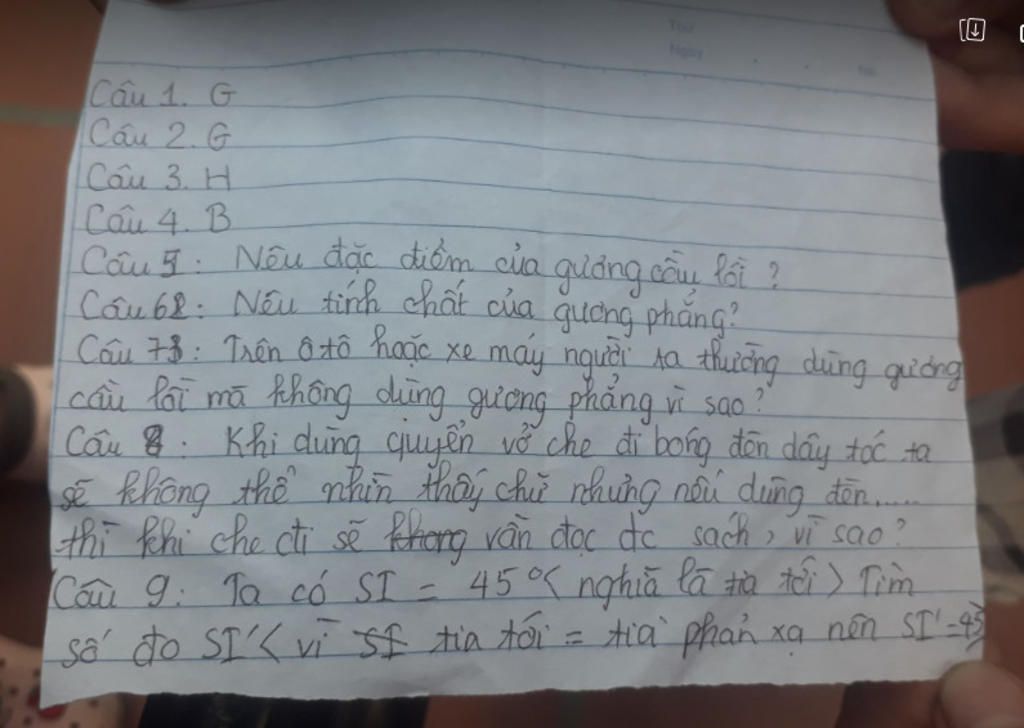 Thứ
Ngày
No
Câu 1. G
Câu 2. G
Câu 3. H
Câu 4. B
Câu 5: Nêu đặc điểm của gương cầu lồi?
Câu 62: Nêu tính chất của gương phẳng?
Câu 73: Trên ô tô hoặc xe máy người ta thường dùng gương
cầu lồi mà không dùng gương phẳng vì sao?
Câu 8: Khi dùng quyển vở che đi bóng đèn dây tóc ta
sẽ không thể nhìn thấy chữ nhưng nếu dùng đèn.....
thì khi che đi sẽ không vẫn đọc đc sách, vì sao?
Câu 9: Ta có SI = 45° < nghĩa là tia tới > Tìm
số đo SI' < vì SI tia tới = tia phản xạ nên SI' = 45